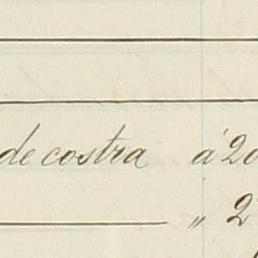 de costra á 20
" 2